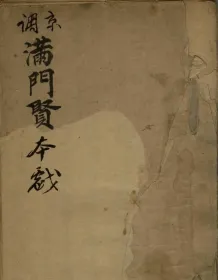 京调
满門賢本戲